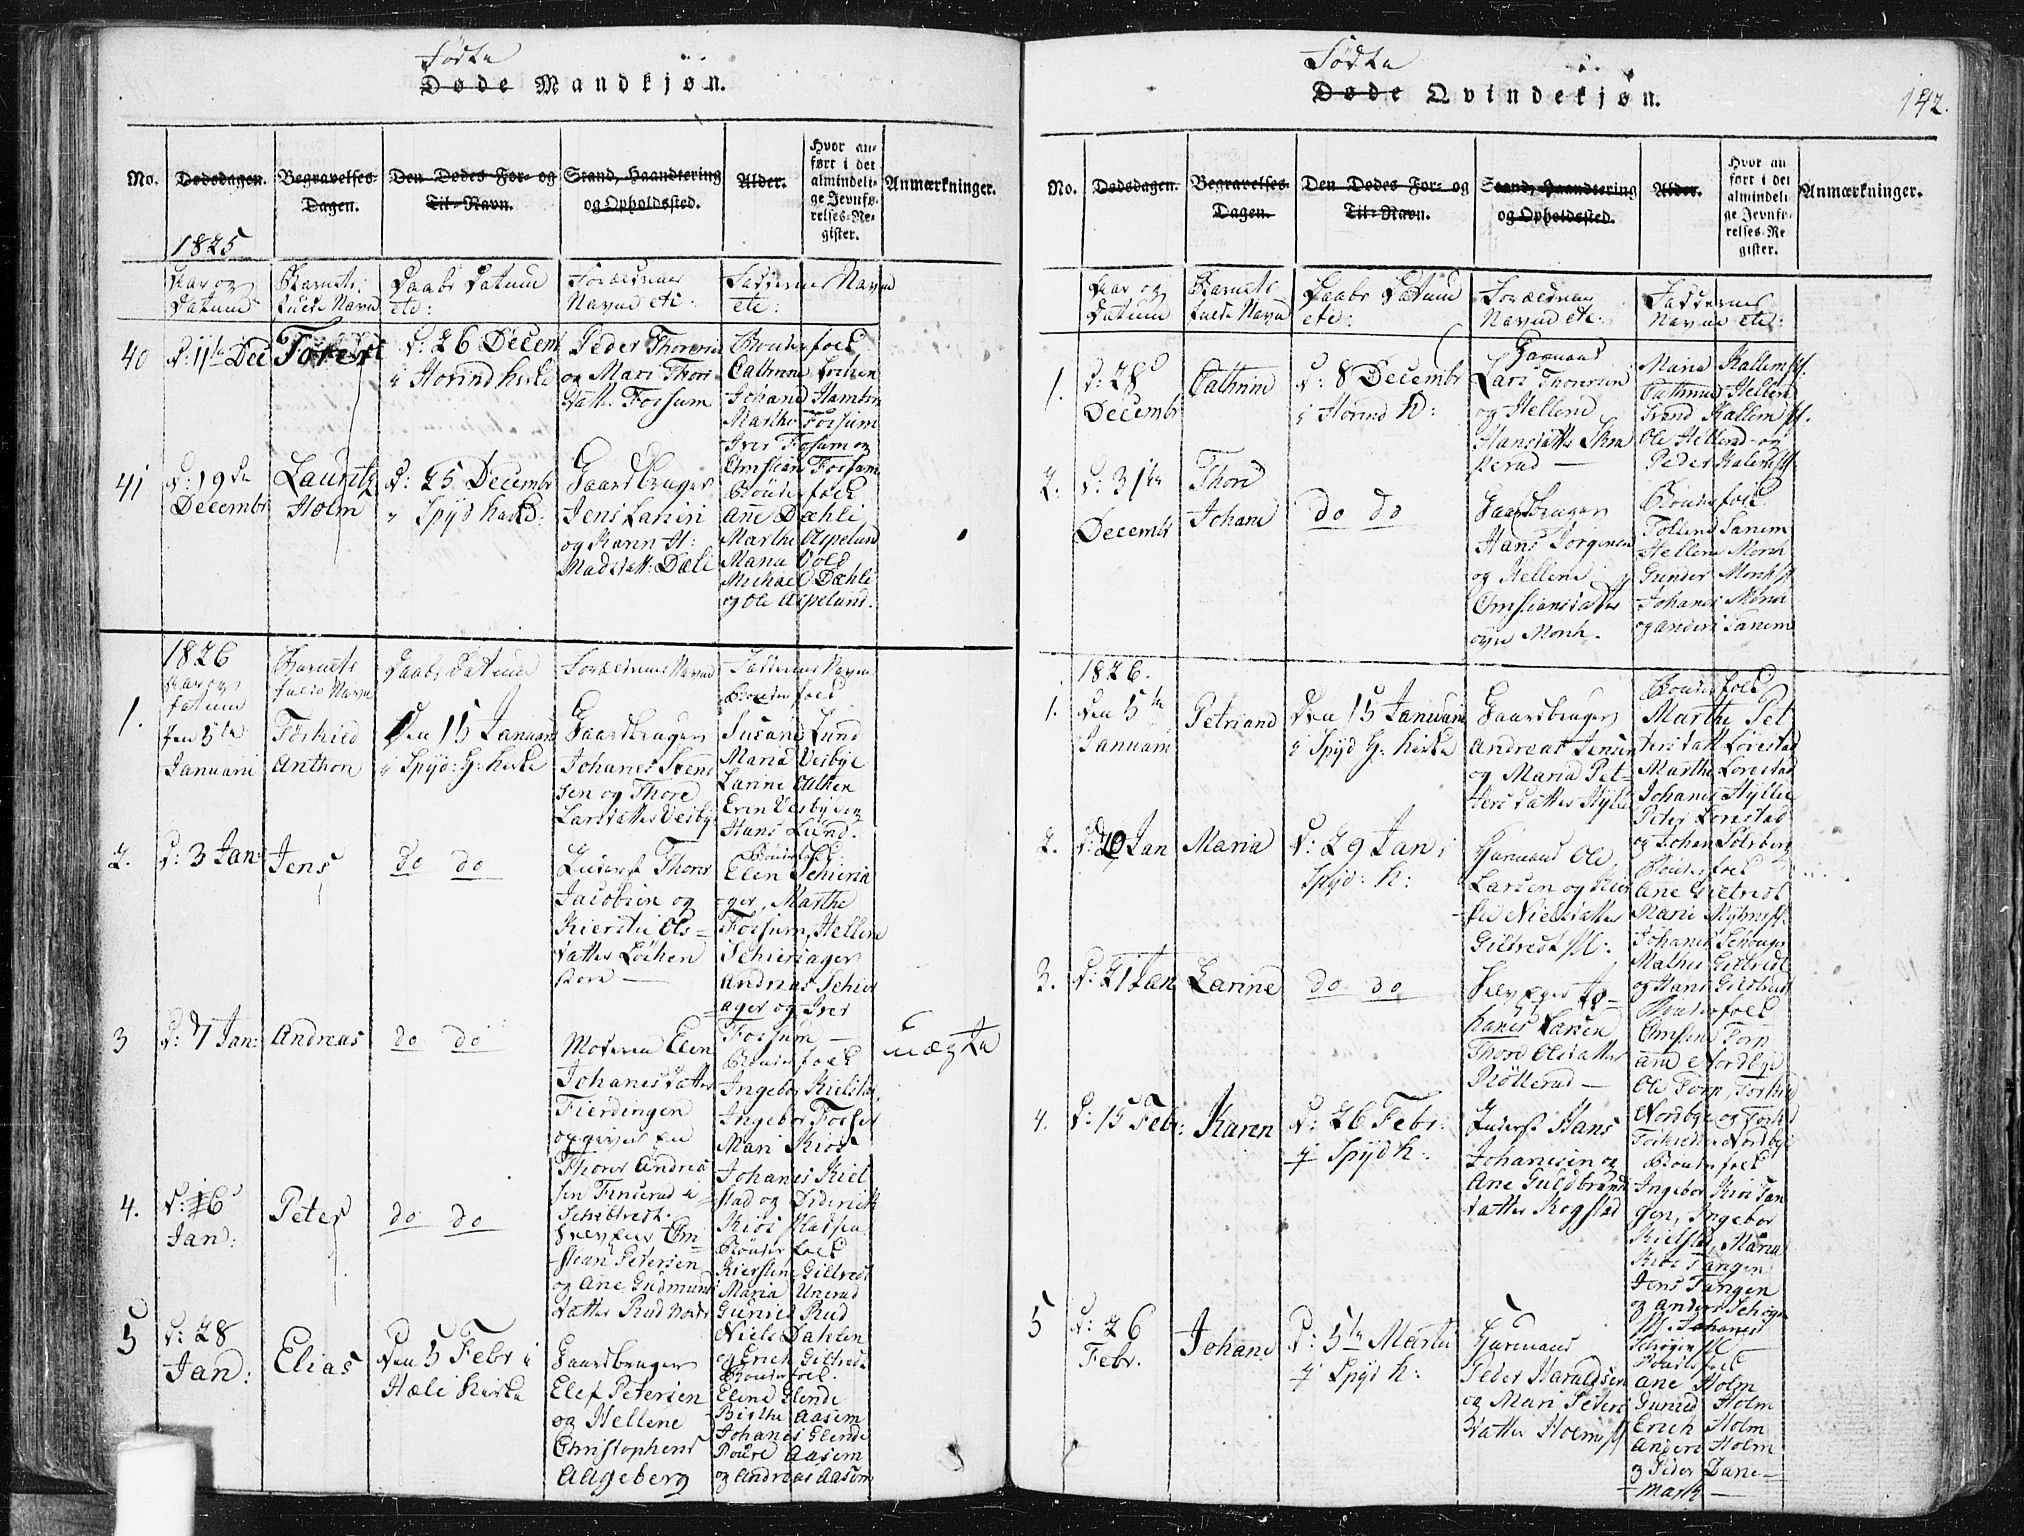 Födte
Døde Mandkjøn.
No.
Dødsdagen.
Begravelses-
Dagen.
Den Dødes For- og
Til-Navn.
Stand, Haandtering
og Opholdssted.
Alder.
Hvor an-
ført i det
almindeli-
ge Jevnfø-
relses-Re-
gister.
Anmærkninger.
1825
Aar og
Datum
Barnets
fulde Navn
Daabs Datum
etc:
Forældrenes
Navne etc:
Faddernes Navne
etc:
40
D: 11te Dec
D: 26 Decem
i Hovind Kirke
Peder Thoresen
og Mari Thors
Datt. Fossum
Bönderfolk
Cathrine
Johane
Marthe Fossum
Iver Fossum og
Christian Fossum
41
D: 19de
Decembr
Lauritz
Holm
D: 25 Decembr
i Spyd Kirke
Gaardbruger
Jens Larsen
og Karen H:
Madsdatt: Dæli
Bönderfolk
Ane Dæhli
Marthe Aspelund
Maria Vold
Michael Dæhli
og Ole Aspelund.
1826
Aar og
Datum
Barnets
fulde Navn
Daabs Datum
Forældrenes Navne
Faddernes Navne
1.
Den 5te
Januarii
Torkied
Anthon
Den 15 Januarii
i Spyd: G: Kirke
Gaardbruger
Johanes Svend
sen og Thore
Larsdatter Vesby
Bönderfolk
Susane Lund
Maria Vesbye
Larine
Even Vesby og
Hans Lund.
2.
D: 3 Jan:
Jens
do do
Inderst Thore
Jacobsen og
Kierstie Ols-
datter Löchen
Bönderfolk:
Elen Schieria
ger, Marthe
Fossum, Hellene
Schieriager
Andreas Schier
ager og Iver
Fossum —
3
D: 7 Jan:
Andreas
do do
Moderen Elen
Johanesdatter
Fierdingen
opgiver en
Thorer Andrea
sen
Bönderfolk
Ingebor Kielstad
Ingebor
Mari Kios
Johanes Kiel
stad og Diderich
Kios
uægte
4.
D: 16
Jan:
Peter
do do
Selveier Chri
stian Petersen
og Ane Gudmunds
datter Rud
Bönderfolk
Kierstine Giltvedt
Maria Unerud
Guneld Rud
Niels Dahlen
og Erich Giltvedt
5
D: 28
Jan:
Elias
Den 5 Febr i
Hæli Kirke
Gaardbruger
Elef Petersen
og Hellene
Christophers
Aageberg
Bönderfolk:
Elene Glende
Birthe Aasem
Johanes Glende
Aasem
og Andreas Aasem
Födte
Døde Qvindekjøn.
142.
No.
Dødsdagen.
Begravelses-
Dagen.
Den Dødes For- og
Til-Navn.
Stand, Haandtering
og Opholdssted.
Alder.
Hvor an
ført i det
almindeli
ge Jevnfø-
relses-Re
gister.
Anmærkninger.
Aar og
Datum
Barnets
fulde Navn
Daabs Datum
etc:
Forældrenes
Navne etc:
Faddernes
Navne etc:
1.
D: 28
Decembr
Cathrine
D: 8 Decembr
i Hovind K:
Huusmand
Lars Thoresen
og Hellene
Hansdatter
Maria Kallem
Cathrine Hellerud
Svend Kallem
Ole Hellerud og
Peder Kallem
2.
D: 31te
Decembr
Thore
Johane
do do
Gaardbruger
Hans Jorgensen
og Hellene
Christiansdatter
Monh.
Bönderfolk
Tollene Sanem
Hellene Monh
Gunder Monh
Johanes Monh
og Anders Sanem
1826.
1.
Den 5te
Januarii
Petriane
Den 15 Januarii
i Spyd G: Kirke
Gaardbruger
Andreas Jensen
og Maria Pet-
ters datter Hyllie
Bönderfolk
Marthe Pet
tersdatt Lörestad
Marthe Lorestad
Johanes Hyllie
Peter Lorestad
og Johan Solberg
2.
D: 20 Jan
Maria
D: 29 Jan i
Spyd: K:
Huusmand Ole
Larsen og Kier
stie Nielsdatter
Giltvedt
Bönderfolk
Ane Giltvedt
Marie
Johanes
Mathis Giltvedt
og Hans Giltvedt
3.
D: 21 Jan
Larine
do do
Selveier Jo-
hanes Larsen
Thore Olsdatter
Bönderfolk
Christian Torp
Ane Nordbye
Ole Torp, Torkied
Nordbye og
Torkiedsen Nordbye
4.
D: 15 Febr:
Karen
D: 26 Febr:
i Spyd K:
Inderst Hans
Johanesen og
Ane Guldbrands
datter Kogstad
Bönderfolk
Ingebor Kios Tan
gen, Ingebor
Kielstad, Maria
Kios Tangen
Jens Tangen
og Anders
Johanes
5
D: 26
Febr.
Johane
D: 5te Martii
i Spyd K:
Huusmand
Peder Haraldsen
og Mari Peders
datter Holm
Bönderfolk
Ane Holm
Guneld Holm
Erich Holm
Anders Holm
og Peder Dane-
mark —